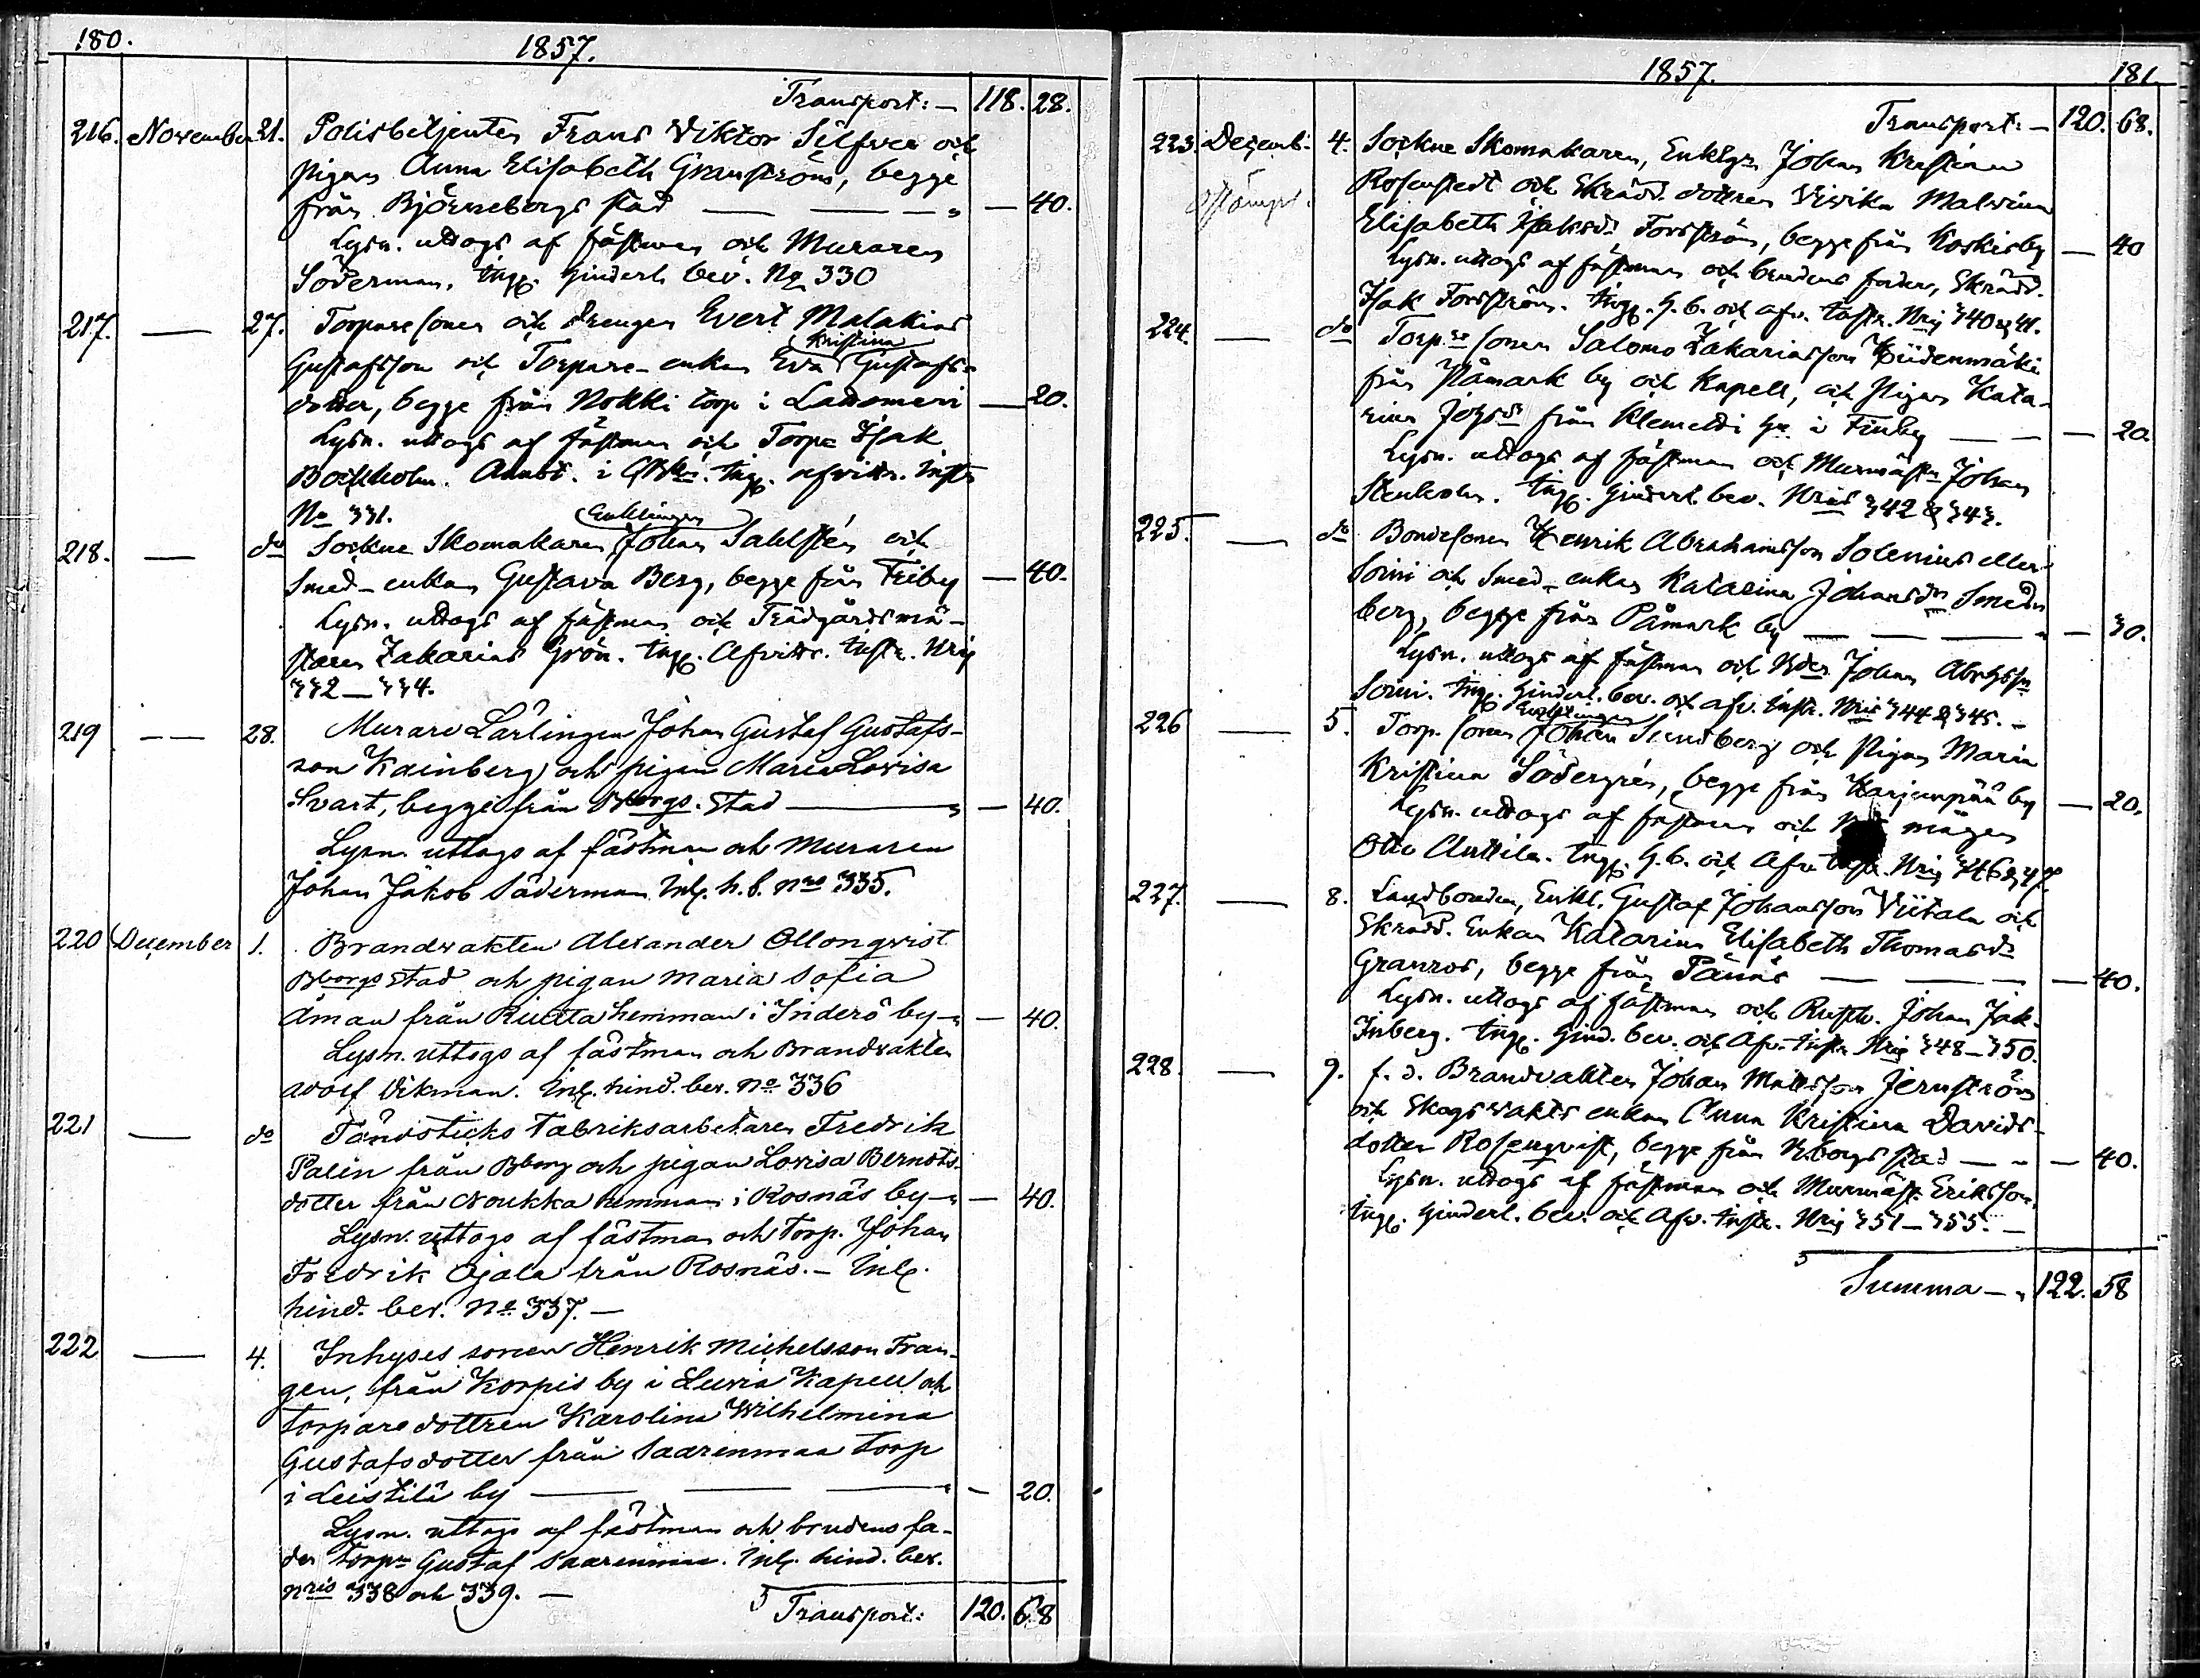 180.
1857.
Transport: — 118. 28.
216. November 21. Polisbetjenten Frans Viktor Silfver och
pigan Anna Elisabeth Granström, begge
från Björneborgs stad — — — " — 40.
Lysn. uttogs af fästman och Muraren
Söderman. Ingf. hinderl. bev. No 330
217. — 27. Torparesonen och drengen Evert Malakias
Kristina
Gustafsson och Torpare-enkan Eva Gustafs-
dotter, begge från Nokki torp i Lattomeri — 20.
Lysn. uttogs af fästman och Torpn Isak
Bockholm. Ingf. afvittr. Inst.
No 331.
Enklingen
218. — do Sockne Skomakaren Johan Sahlstén och
Smed-enkan Gustava Berg, begge från Friby — 40.
Lysn. uttogs af fästman och Trädgårdsmä-
staren Zakarias Grön. Ingf. Afvittr. Instr. Nris
332—334.
219 — — 28. Murare Lärlingen Johan Gustaf Gustafs-
son Kainberg och pigan Maria Lovisa
Svart, begge från Bborgs. Stad — " — 40.
Lysn. uttogs af fästman och Muraren
Johan Jakob Söderman. Inlf. h. b. Nro 335.
220 December 1. Brandvakten Alexander Ollonqvist
Bborgs stad och pigan Maria Sofia
Åman från Ruutta hemman i Inderö by — " — 40.
Lysn. uttogs af fästman och Brandvakten
Adolf Vikman. Inlf. hind. bev. No 336
221 — do Tändsticks fabriksarbetaren Fredrik
Palin från Bborg och pigan Lovisa Bernots-
dotter från Noukka hemman i Rosnäs by — " — 40.
Lysn. uttogs af fästman och Torp. Johan
Fredrik Ojala från Rosnäs. — Inlf.
hind. bev. No 337. —
222 — 4. Inhyses sonen Henrik Michelsson Fran-
gen, från Korpis by i Luvia Kapell och
torpare dottren Karolina Wilhelmina
Gustafsdotter från Saarenmaa torp
i Leistilä by — — — " — 20.
Lysn. uttogs af fästman och brudens fa-
der Torpn Gustaf Saarenmaa. Inlf. hind. bev.
Nris 338 och 339. —
Transport: 120. 68
1857. 181
Transport: — 120. 68.
223. Decemb. 4. Sockne Skomakaren, Enklgn Johan Kristian
Rosenstedt och Skrädd. dottren Vivika Malvina
Elisabeth Isaksdr Forsström, begge från Koskisby — 40
Lysn. uttogs af fästman och brudens fader, Skrädd.
Isak Forsström. Ingf. h. b. och afv. Instr. Nris 340 & 41.
224. — do Torp.re sonen Salomo Zakariasson Hiidenmäki
från Påmark by och Kapell, och Pigan Kata-
rina Johsdr från Klemetti hn i Finby — — — 20.
Lysn. uttogs af fästman och Murmästn Johan
Stenholm. Ingf. hinderl. bev. Nris 342 & 343.
225. — do Bondesonen Henrik Abrahamsson Solenius eller
Soini och Smed-enkan Katarina Johansdr Smed-
berg, begge från Påmark by — — — " — 30.
Lysn. uttogs af fästman och Bden Johan Abrhssn
Soini. Ingf. hinderl. bev. och afv. Instr. Nris 344 & 345. —
Enklingen
226 — 5. Torp. sonen Johan Sundberg och Pigan Maria
Kristina Södergrén, begge från Harjunpää by — 20.
Lysn. uttogs af fästman och mågen
Otto Anttila. Ingf. h. b. och Afv. Instr. Nris 346 & 47.
227. — 8. Landbonden, Enkl. Gustaf Johansson Viitala och
Skrädd. Enkan Katarina Elisabeth Thomasdr
Granroos, begge från Pänäs — — — 40.
Lysn. uttogs af fästman och Rusth. Johan Jak.
Inberg. Ingf. hind. bev. och Afv. Instr. Nris 348—350.
228. — 9. f. d. Brandvakten Johan Mattsson Jernström
och Skogsvakts enkan Anna Kristina Davids-
dotter Rosenqvist, begge från Bborgs stad — " — 40.
Lysn. uttogs af fästman och Murmäst. Eriksson.
Ingf. hinderl. bev. och Afv. Instr. Nris 351—355. —
Summa — " 122. 58